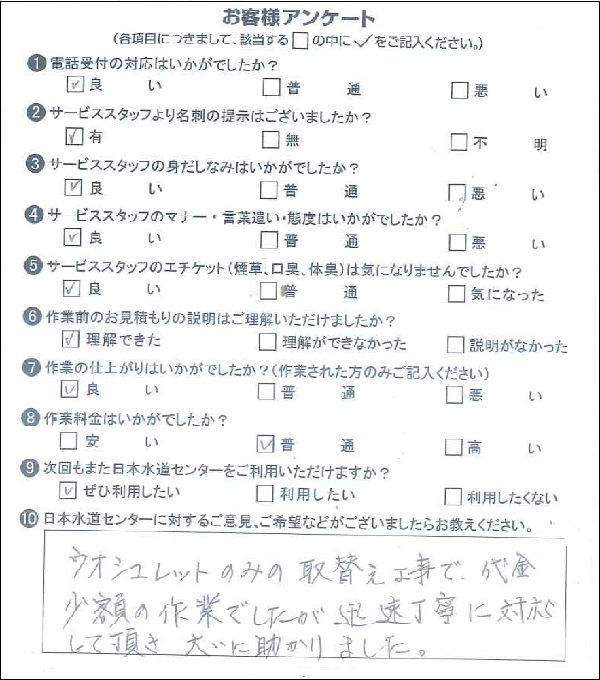 お客様アンケート
(各項目につきまして、該当する□の中に✓をご記入ください。)
❶ 電話受付の対応はいかがでしたか?
☑ 良い □ 普通 □ 悪い
❷ サービススタッフより名刺の提示はございましたか?
☑ 有 □ 無 □ 不明
❸ サービススタッフの身だしなみはいかがでしたか?
☑ 良い □ 普通 □ 悪い
❹ サービススタッフのマナー・言葉遣い・態度はいかがでしたか?
☑ 良い □ 普通 □ 悪い
❺ サービススタッフのエチケット(煙草、口臭、体臭)は気になりませんでしたか?
☑ 良い □ 普通 □ 気になった
❻ 作業前のお見積もりの説明はご理解いただけましたか?
☑ 理解できた □ 理解ができなかった □ 説明がなかった
❼ 作業の仕上がりはいかがでしたか?(作業された方のみご記入ください)
☑ 良い □ 普通 □ 悪い
❽ 作業料金はいかがでしたか?
□ 安い ☑ 普通 □ 高い
❾ 次回もまた日本水道センターをご利用いただけますか?
☑ ぜひ利用したい □ 利用したい □ 利用したくない
❿ 日本水道センターに対するご意見、ご希望などがございましたらお教えください。
ウオシュレットのみの取替え工事で、代金
少額の作業でしたが迅速丁寧に対応
して頂き大いに助かりました。